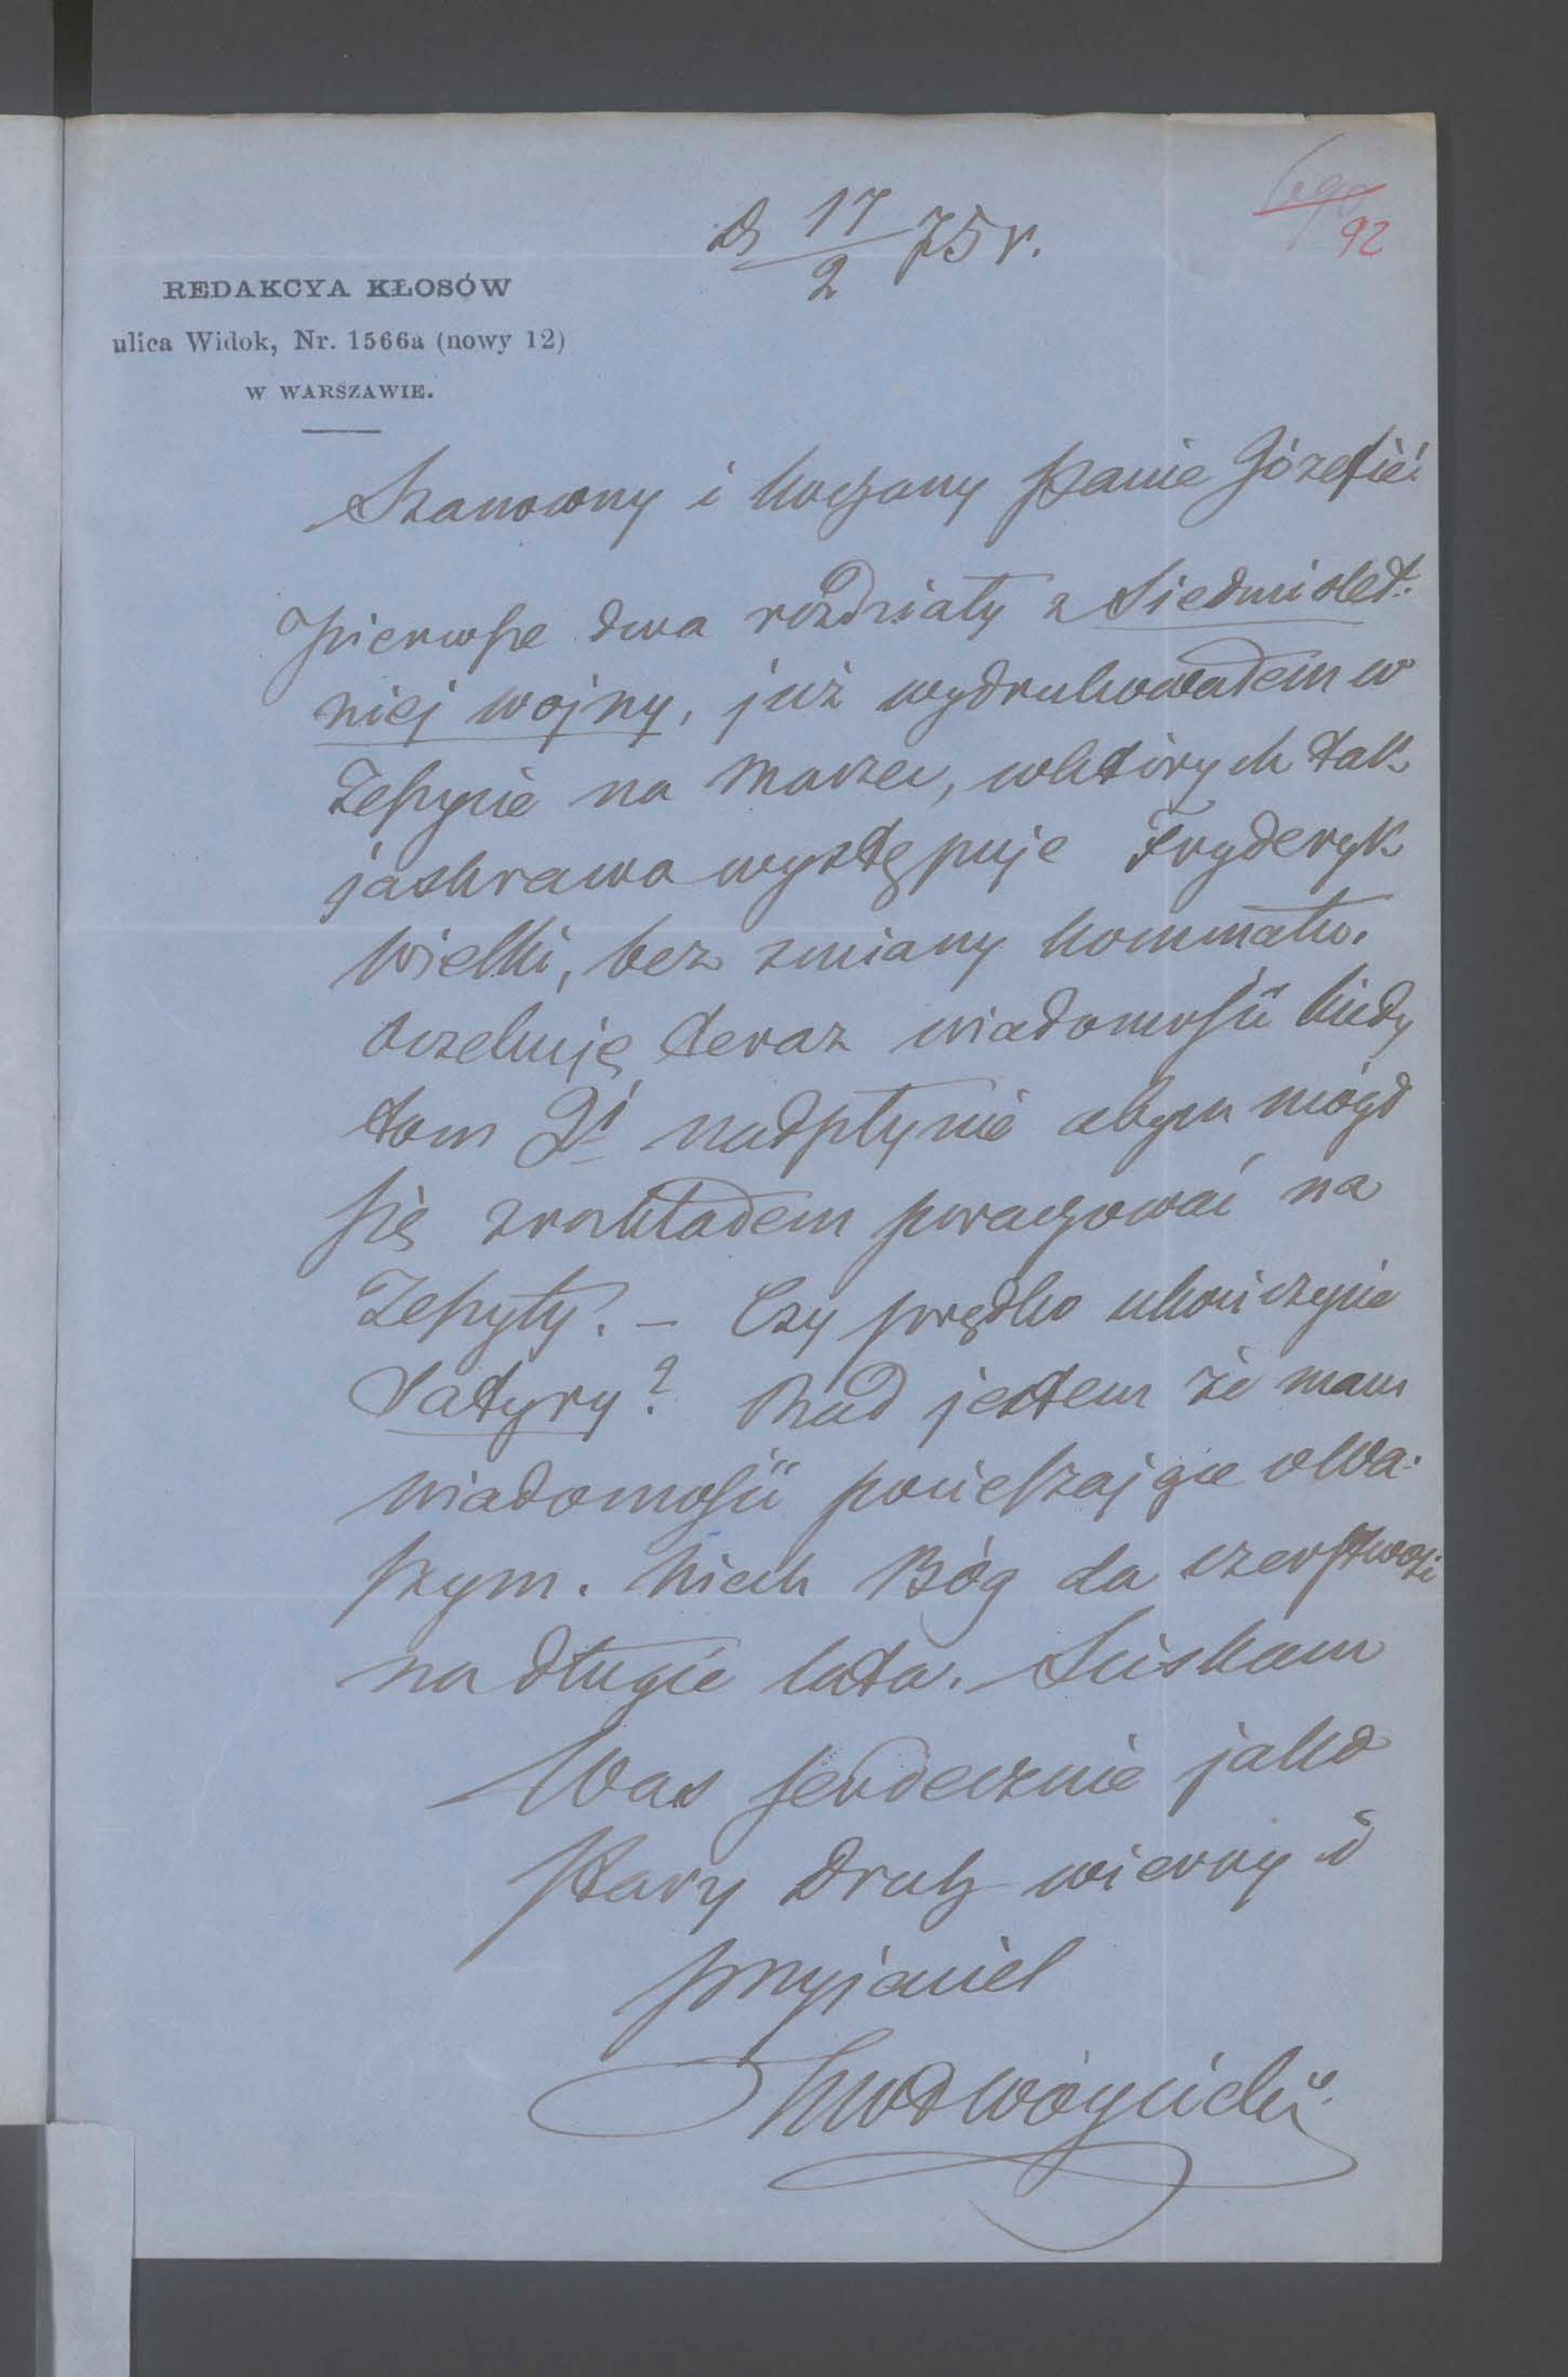 d 17/2 75 r.
92
REDAKCYA KŁOSÓW
ulica Widok, Nr. 1566a (nowy 12)
W WARSZAWIE.
Szanowny i kochany Panie Józefie!
Pierwsze dwa rozdziały z Siedmiolet-
niej wojny, już wydrukowałem w
Zeszycie na Marzec, w których tak
jaskrawo występuje Fryderyk
Wielki, bez zmiany kommatu.
Oczekuję teraz wiadomości kiedy
tom 2i nadpłynie abym mógł
się z rozkładem porachować na
Zeszyty. – Czy prędko ukończycie
Satyry? Rad jestem że mam
wiadomości pocieszające o Wa-
szym. Niech Bóg da czerstwości
na długie lata. Ściskam
Was serdecznie jako
stary druh wierny i
przyjaciel
KWł Wójcicki